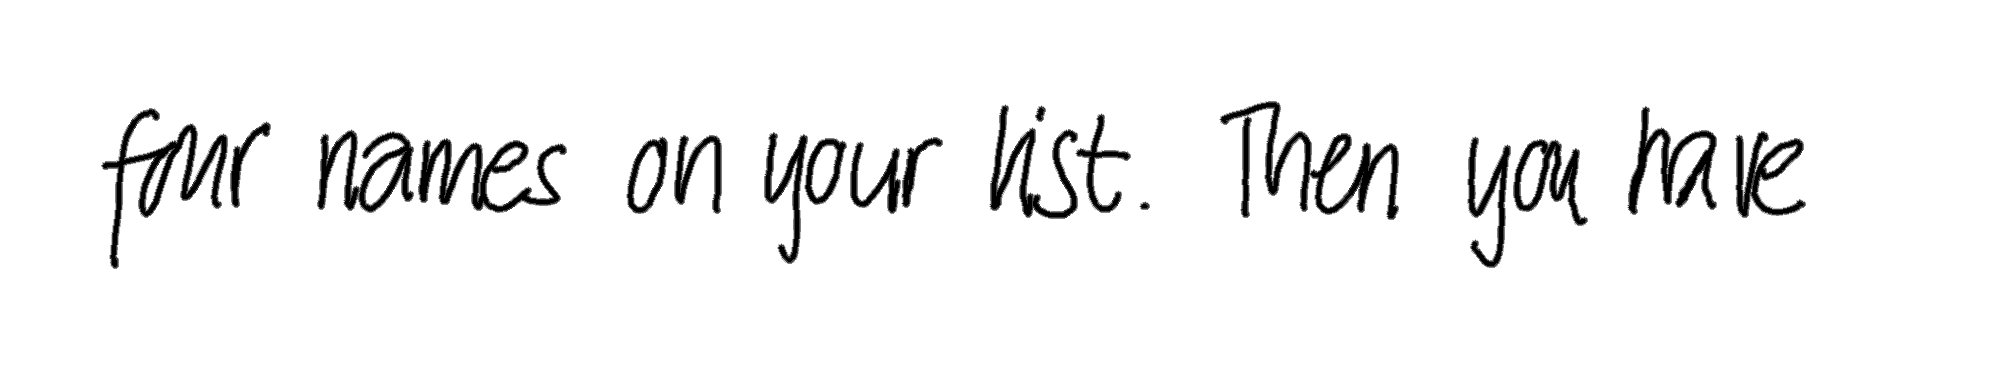 four names on your list. Then you have